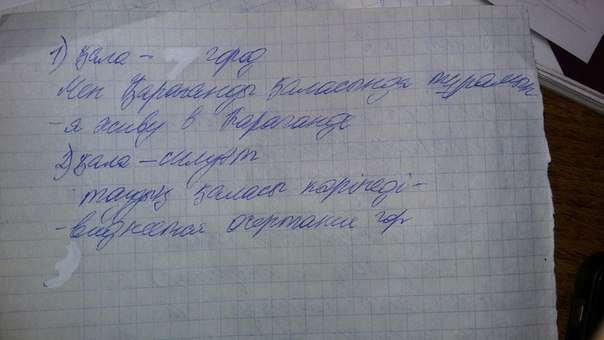 1) қала – город
Мен Қарағанды қаласында тұрамын
- я живу в Караганде
2) қала – силуэт
таудың қаласы көрінеді -
- виднеются очертание гор